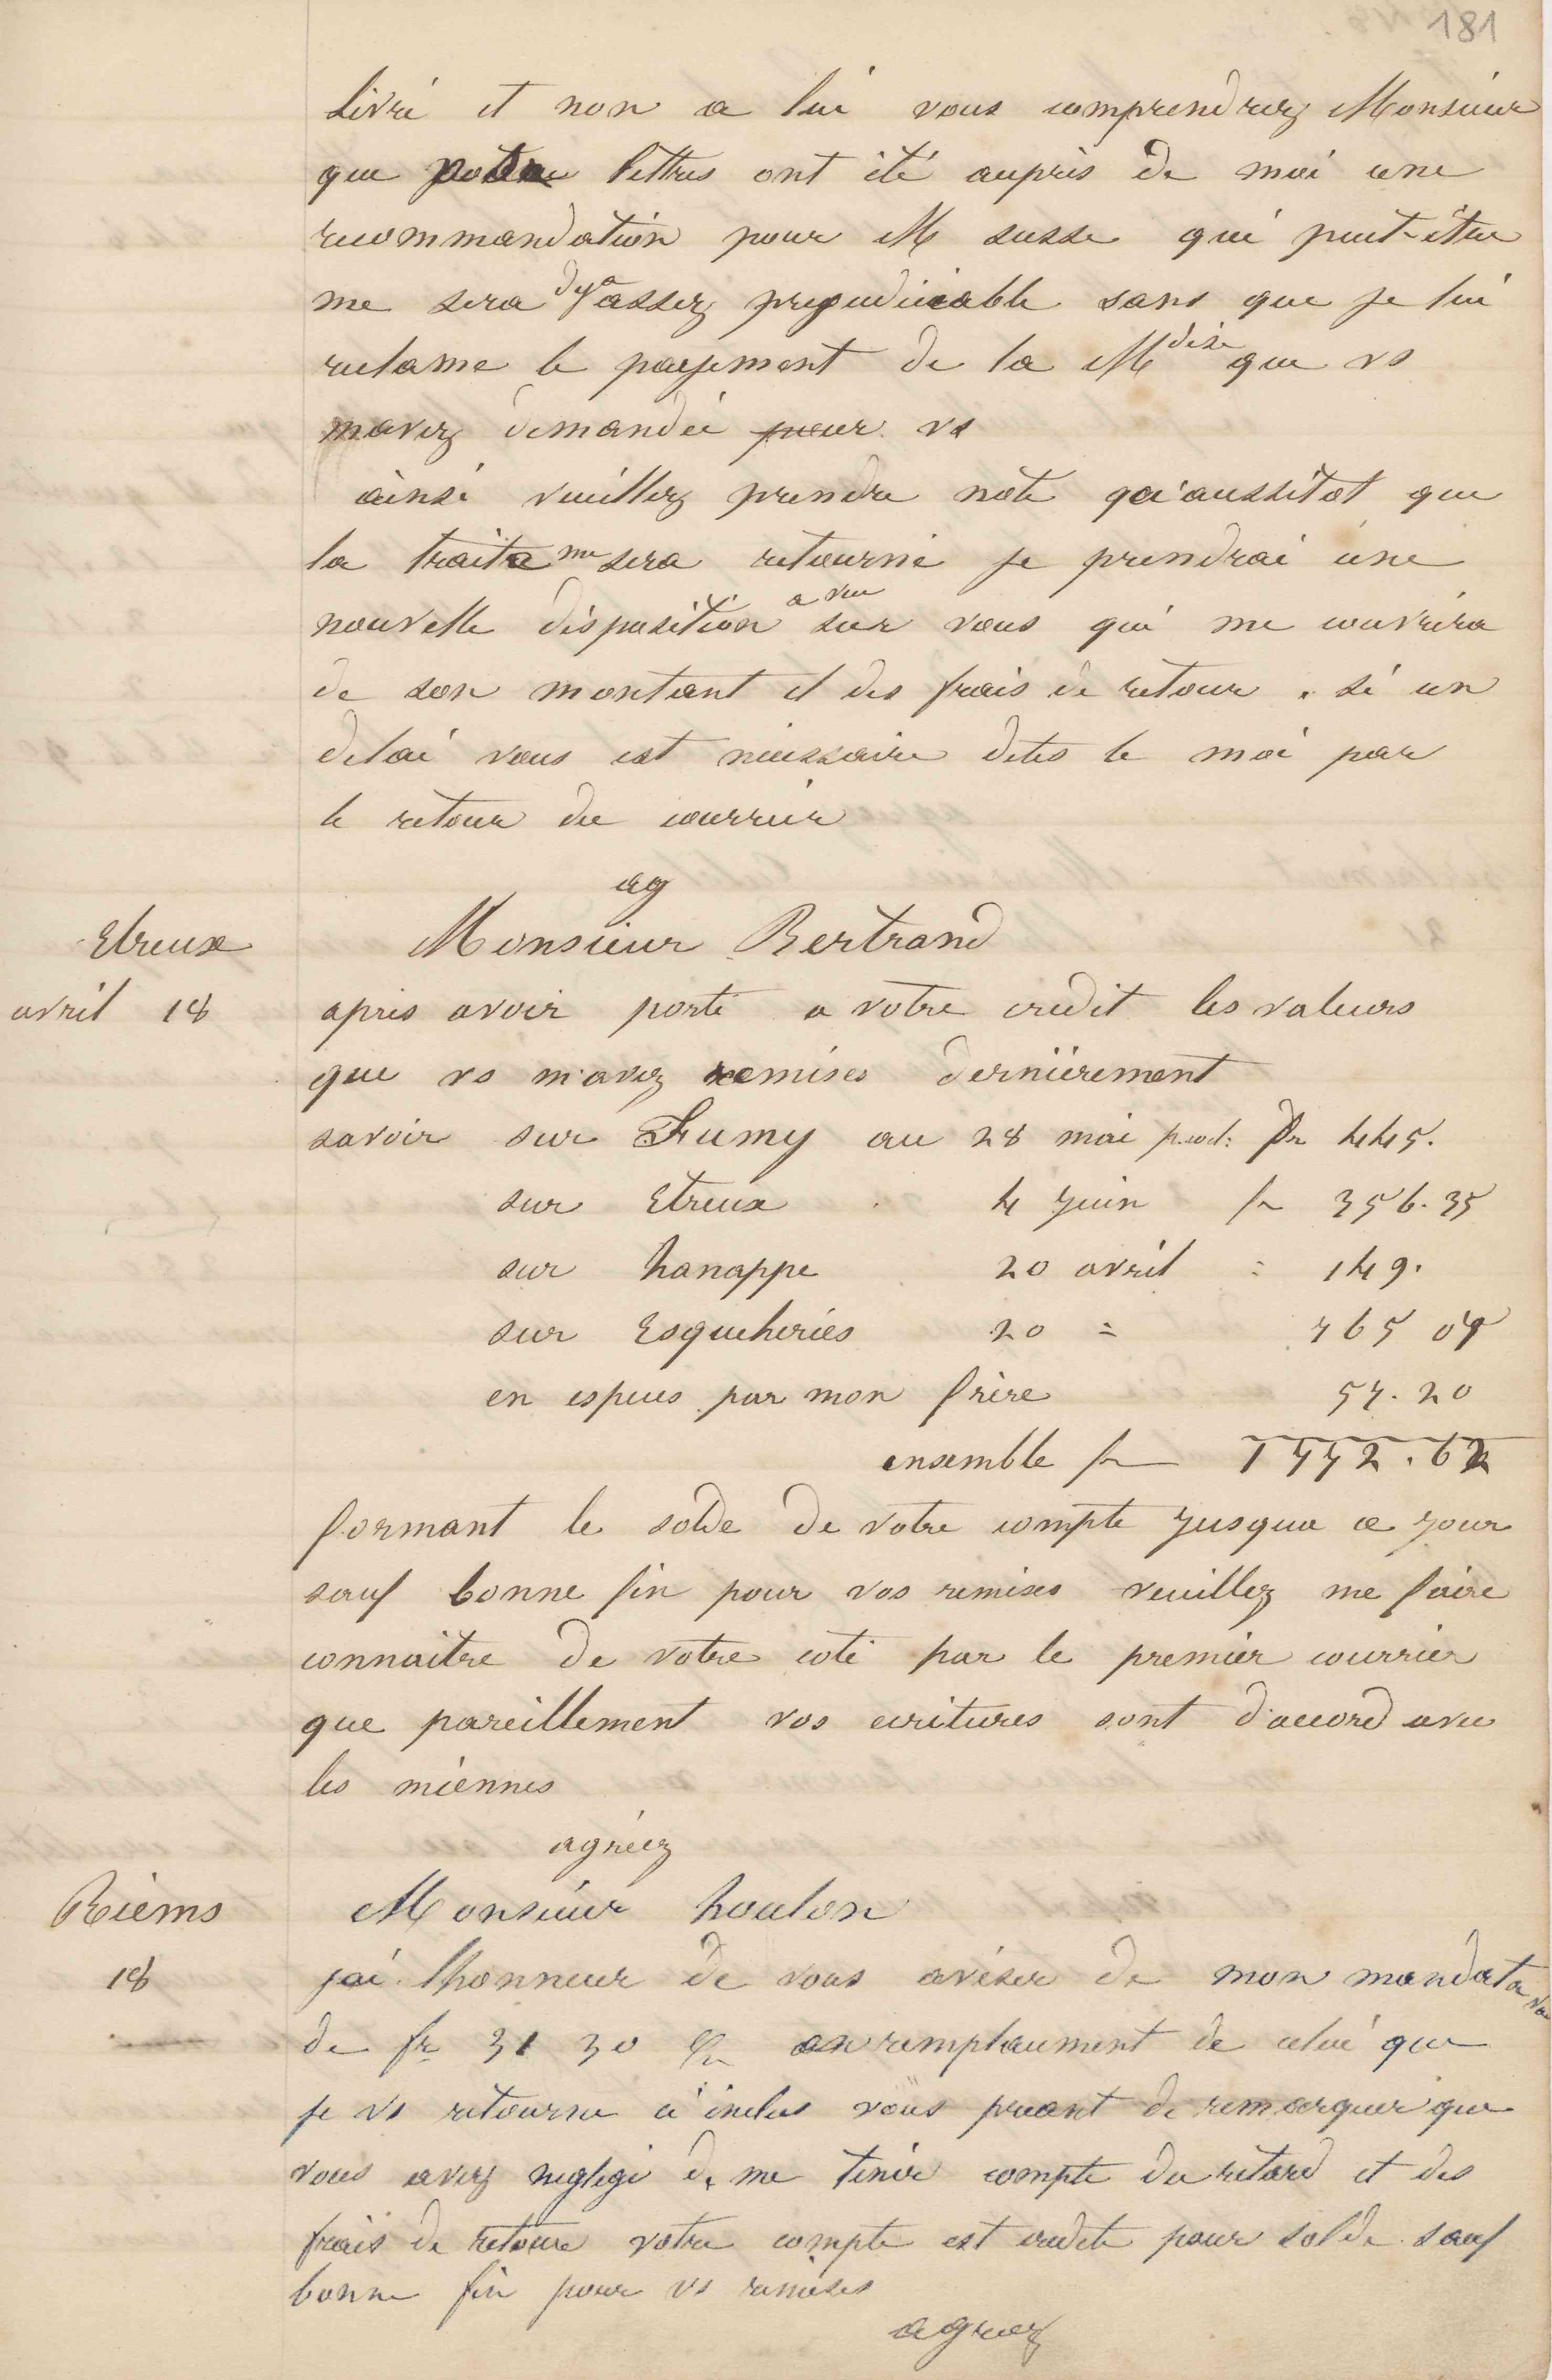 181
livré et non a lui vous comprendrez Monsieur
que lettres ont été auprès de moi une
recommandation pour M susse qui peut-être
me sera deja assez prejudiciable sans que je lui
reclame le payement de la Mdise que vs
mavez demandée pour vs
ainsi veuillez prendre note qu'aussitot que
la traite me sera retourné je prendrai une
nouvelle disposition a vue sur vous qui me couvrira
de son montant et des frais de retour. si un
delai vous est nécessaire dites le moi par
le retour du courrier
ag
Etreux Monsieur Bertrand
avril 18 apres avoir porté a votre credit les valeurs
que vs m'avez remises dernièrement
savoir sur Frumy au 28 mai prod: fr 445.
sur Etreux 4 juin fr 356.35
sur hanappe 20 avril = 149.
sur Esqueheries 20 = 765 07
en especes par mon frère 57.20
ensemble fr 1772.62
formant le solde de votre compte jusqua ce jour
sauf bonne fin pour vos remises veuillez me faire
connaitre de votre coté par le premier courrier
que pareillement vos ecritures sont d'accord avec
les miennes
agréez
Reims Monsieur houlon
18 jai lhonneur de vous aviser de mon mandat a vue
de fr 31 30 en remplacement de celui que
je vs retourne ci inclus vous priant de remarquer que
vous avez negligé de me tenir compte du retard et des
frais de retour votre compte est credité pour solde sauf
bonne fin pour vs remises
agreez